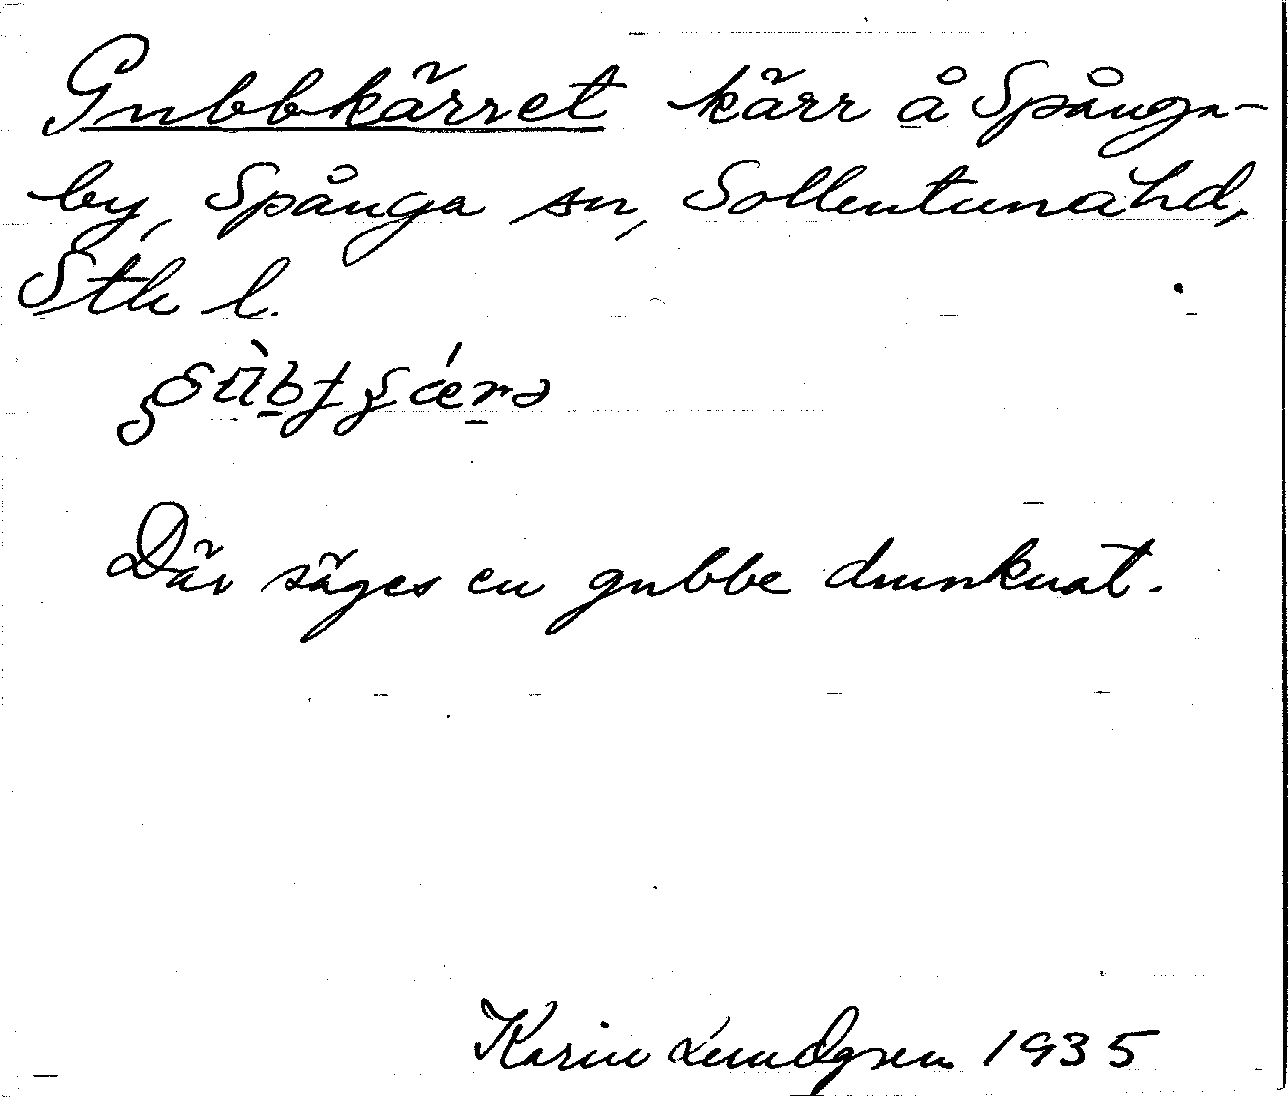 Gubbkärret kärr å Spånga-
by, Spånga sn, Sollentuna hd,
Sth l.
Där säges en gubbe drunknat.
Karin Lundgren 1935